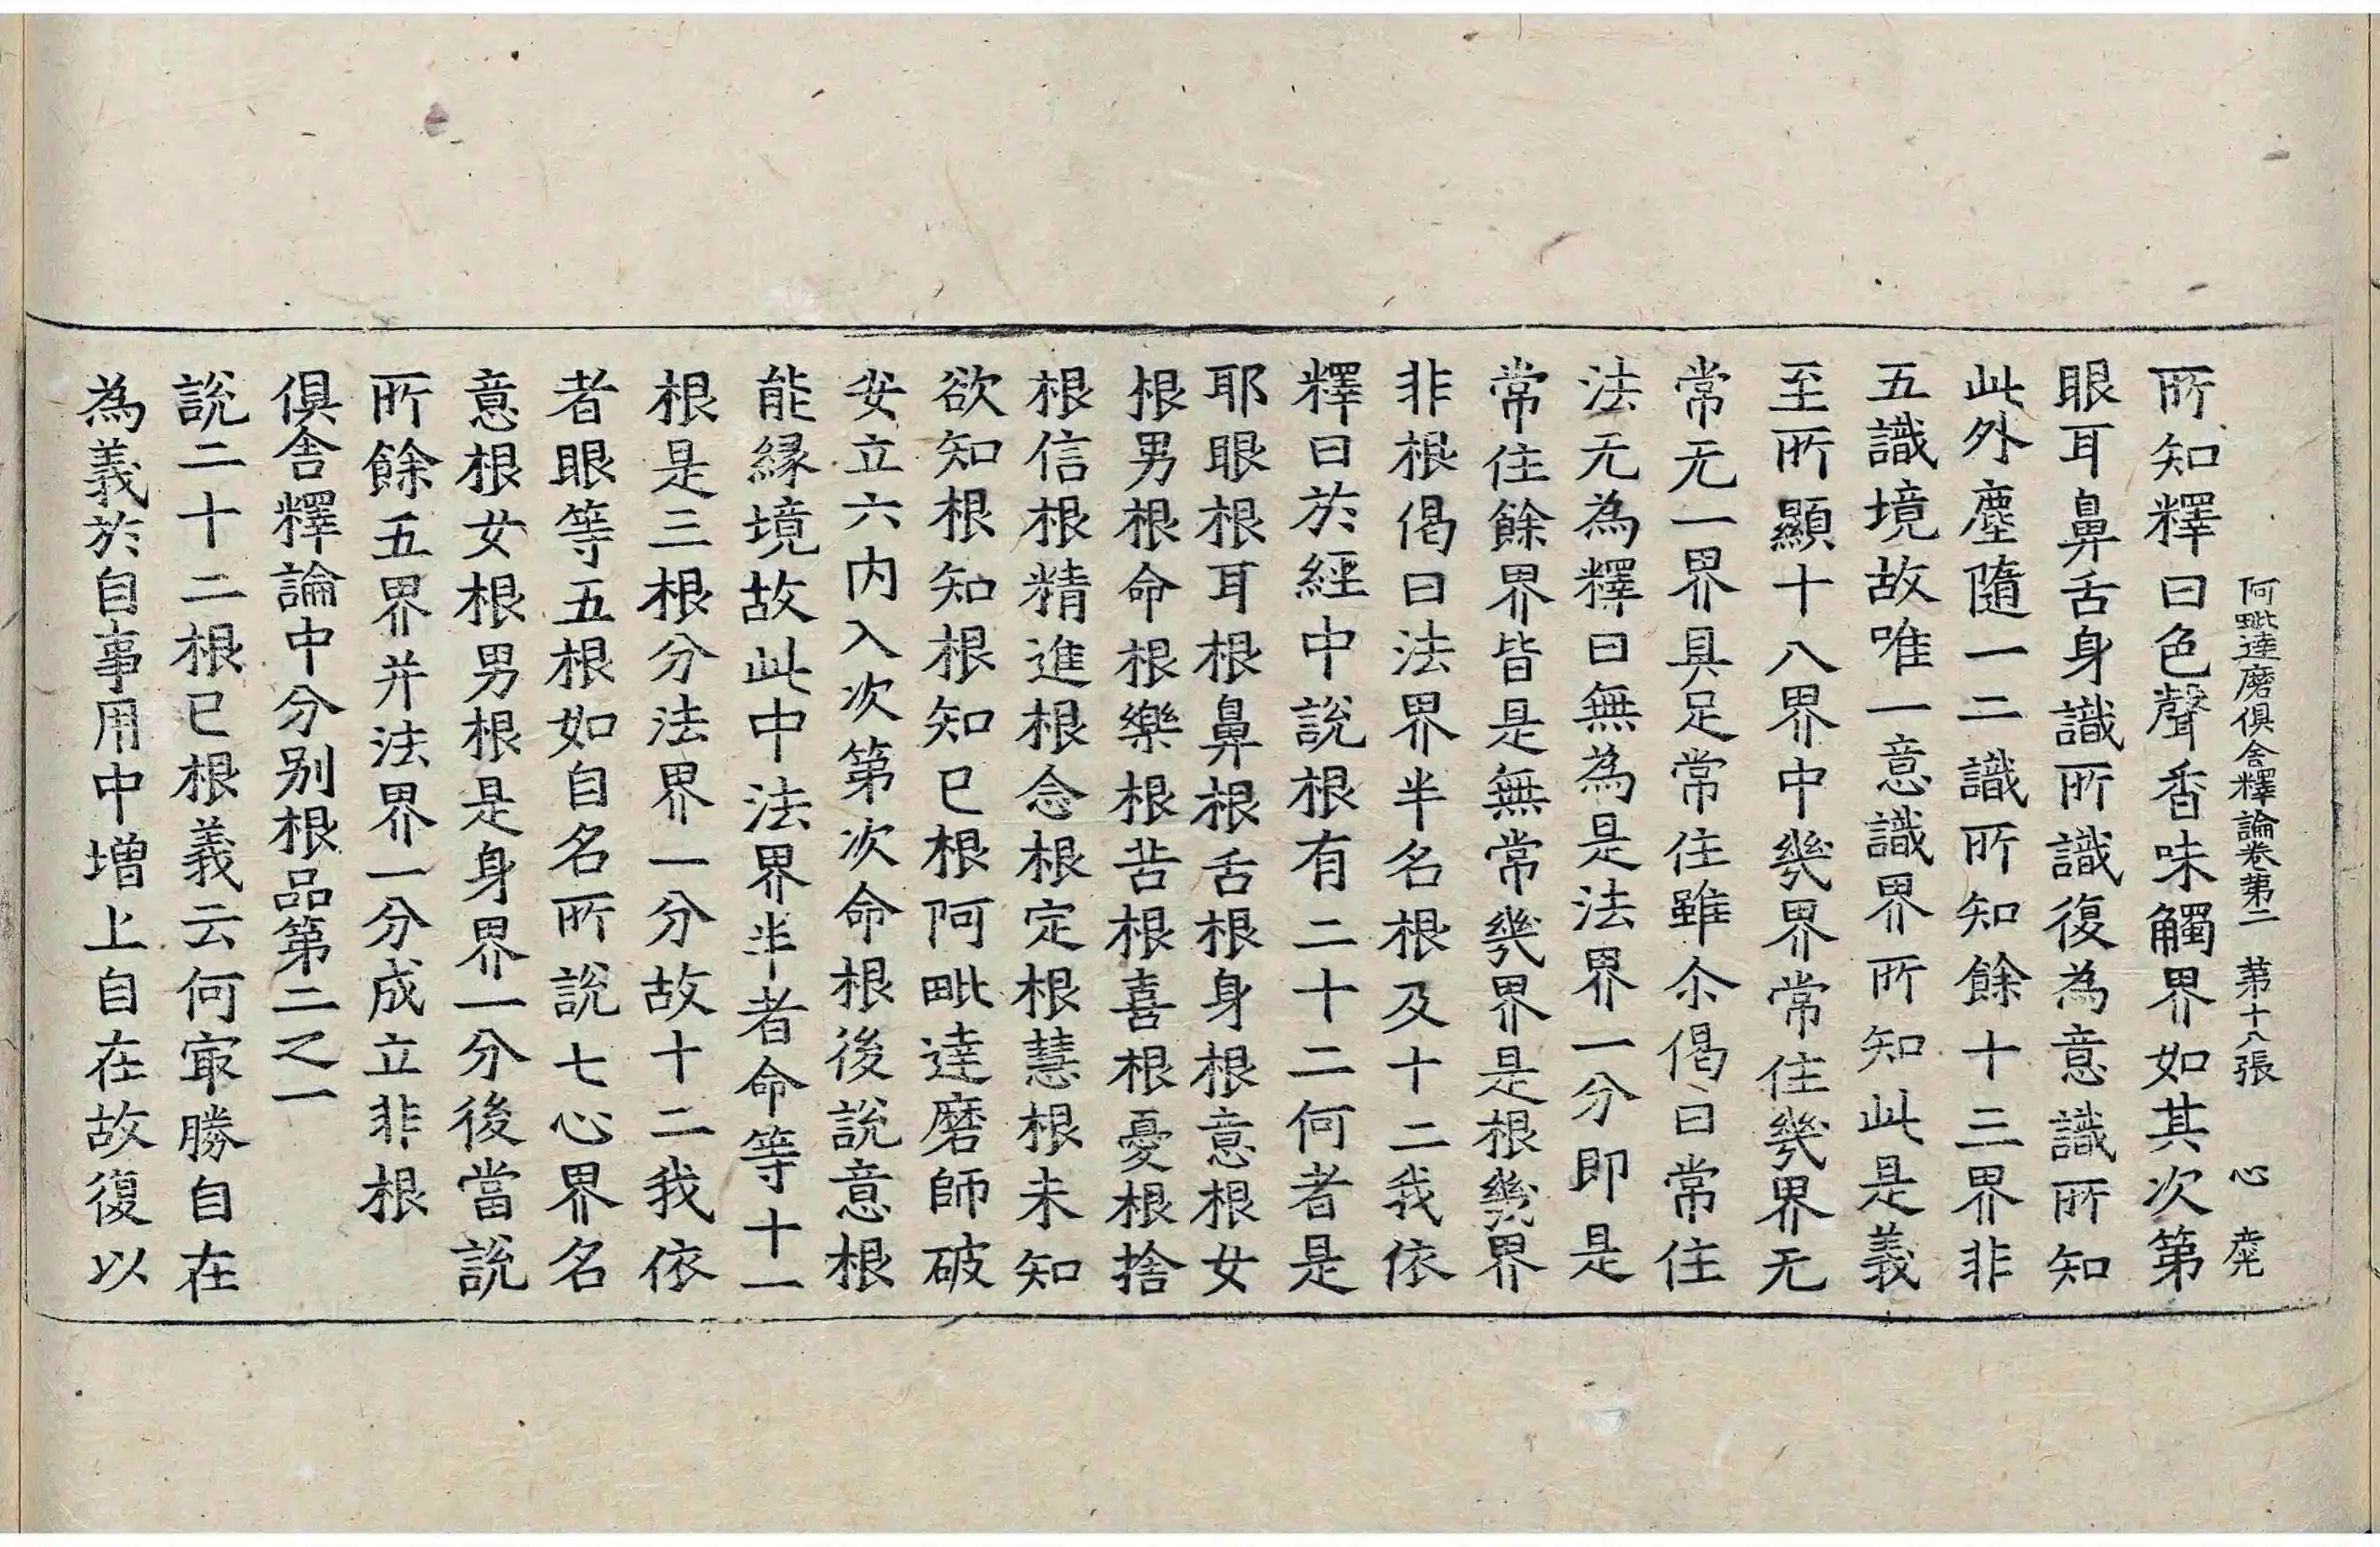 阿毗達磨俱舍釋論卷第二 第十八張 心
所知釋曰色聲香味觸界如其次第
眼耳鼻舌身識所識復為意識所知
此外塵隨一二識所知餘十三界非
五識境故唯一意識界所知此是義
至所顯十八界中幾界常住幾界无
常无一界具足常住雖尒偈曰常住
法无為釋曰無為是法界一分即是
常住餘界皆是無常幾界是根幾界
非根偈曰法界半名根及十二我依
釋曰於經中說根有二十二何者是
耶眼根耳根鼻根舌根身根意根女
根男根命根樂根苦根喜根憂根捨
根信根精進根念根定根慧根未知
欲知根知根知已根阿毗達磨師破
安立六內入次第次命根後說意根
能緣境故此中法界半者命等十一
根是三根分法界一分故十二我依
者眼等五根如自名所說七心界名
意根女根男根是身界一分後當說
所餘五界并法界一分成立非根
俱舍釋論中分別根品第二之一
說二十二根已根義云何㝡勝自在
為義於自事用中增上自在故復以